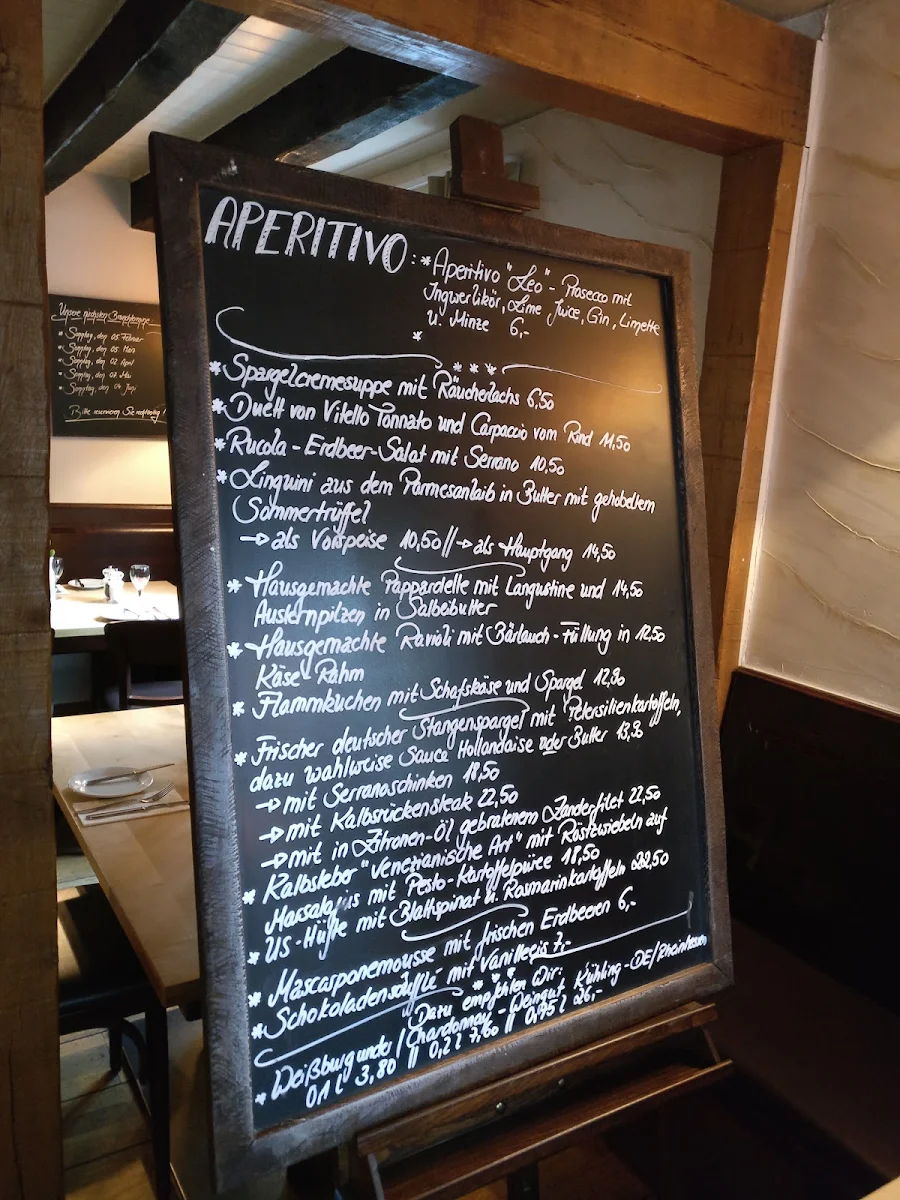 APERITIVO: * Aperitivo "Leo" - Prosecco mit
Ingwerlikör, Lime Juice, Gin, Limette
u. Minze 6,-
*
* * *
* Spargelcremesuppe mit Räucherlachs 6,50
* Duett von Vitello Tonnato und Carpaccio vom Rind 11,50
* Rucola - Erdbeer-Salat mit Serrano 10,50
* Linguini aus dem Parmesanlaib in Butter mit gehobeltem
Sommertrüffel
→ als Vorspeise 10,50 // → als Hauptgang 14,50
* Hausgemachte Pappardelle mit Langustine und 14,50
Austernpilzen in Salbeibutter
* Hausgemachte Ravioli mit Bärlauch-Füllung in 12,50
Käse Rahm
* Flammkuchen mit Schafskäse und Spargel
* Frischer deutscher Stangenspargel mit Petersilienkartoffeln,
dazu wahlweise Sauce Hollandaise oder Butter
→ mit Serranoschinken 18,50
→ mit Kalbsrückensteak 22,50
→ mit in Zitronen-Öl gebratenem Zanderfilet 22,50
* Kalbsleber "Venezianische Art" mit Röstzwiebeln auf
mit Pesto-Kartoffelpüree 18,50
* US-Hüfte mit Blattspinat u. Rosmarinkartoffeln 22,50
* Mascarponemousse mit frischen Erdbeeren 6,-
* Schokoladensoufflé mit Vanilleeis 7,-
* * *
Dazu empfehlen Wir:
* Weißburgunder / Chardonnay - Weingut Kühling - DE/Rheinhessen
0,1 l 3,80 // 0,2 l 7,60 // 0,75 l 26,-
Unsere nächsten Brunchtermine
* Sonntag, den 05. Februar
* Sonntag, den 05. März
* Sonntag, den 02. April
* Sonntag, den 07. Mai
* Sonntag, den 04. Juni
Bitte reservieren Sie rechtzeitig!